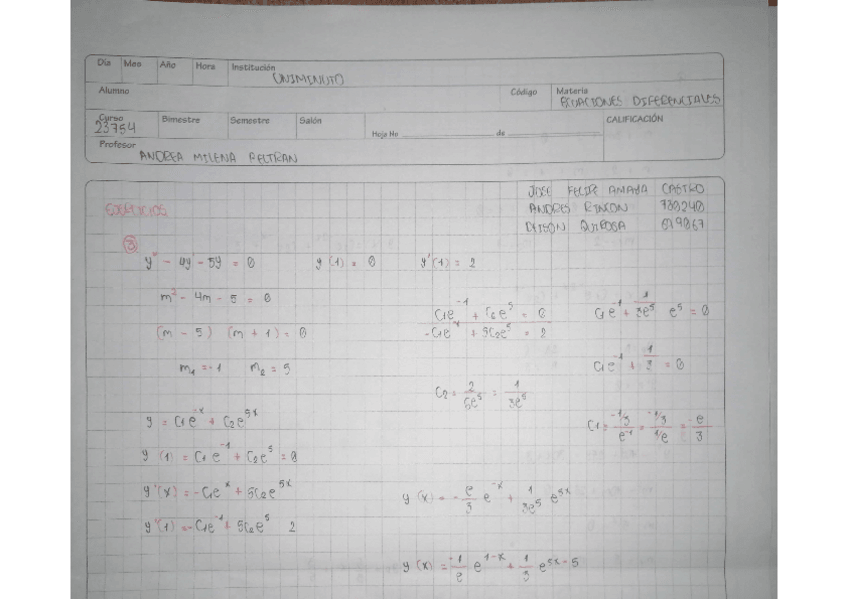 Día Mes Año Hora Institución
UNIMINUTO
Alumno Código Materia
ECUACIONES DIFERENCIALES
Curso Bimestre Semestre Salón CALIFICACIÓN
23754 Hoja No de
Profesor
ANDREA MILENA BELTRAN
JOSE FELIPE AMAYA CASTRO
EJERCICIOS ANDRES RINCON 789240
QUIROGA 619067
③
y'' - 4y' - 5y = 0 y(1) = 0 y'(1) = 2
m² - 4m - 5 = 0
(m - 5) (m + 1) = 0
m₁ = -1 m₂ = 5
y = C₁e^-x + C₂e^5x
y(1) = C₁e^-1 + C₂e^5 = 0
y'(x) = -C₁e^x + 5C₂e^5x
y'(1) = -C₁e^-1 + 5C₂e^5 2
C₁e^-1 + C₂e^5 = 0
-C₁e^-1 + 5C₂e^5 = 2
C₂ = 2/6e^5 = 1/3e^5
C₁e^-1 + 1/3e^5 e^5 = 0
C₁e^-1 + 1/3 = 0
C₁ = -1/3/e^-1 = -1/3/1/e = -e/3
y(x) = -e/3 e^-x + 1/3e^5 e^5x
e^1-x + 1/3 e^5x-5